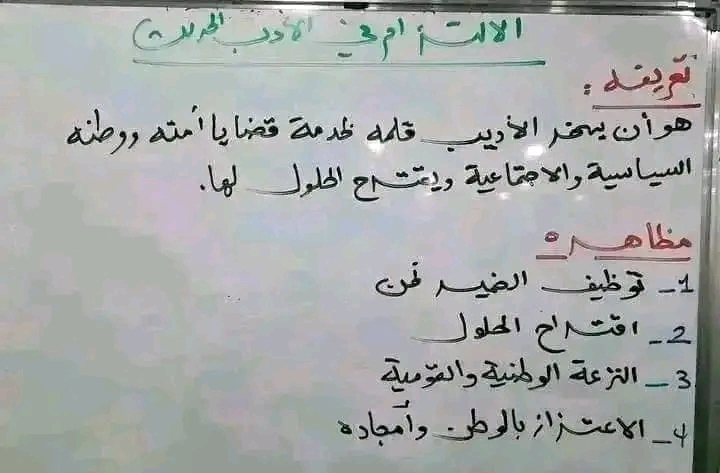 الالتزام في الأدب الحديث
تعريفه :
هو أن يسخر الأديب قلمه لخدمة قضايا أمته ووطنه
السياسية والاجتماعية ويقترح الحلول لها.
مظاهره
1_ توظيف الضمير نحن
2_ اقتراح الحلول
3_ النزعة الوطنية والقومية
4_ الاعتزاز بالوطن وأمجاده